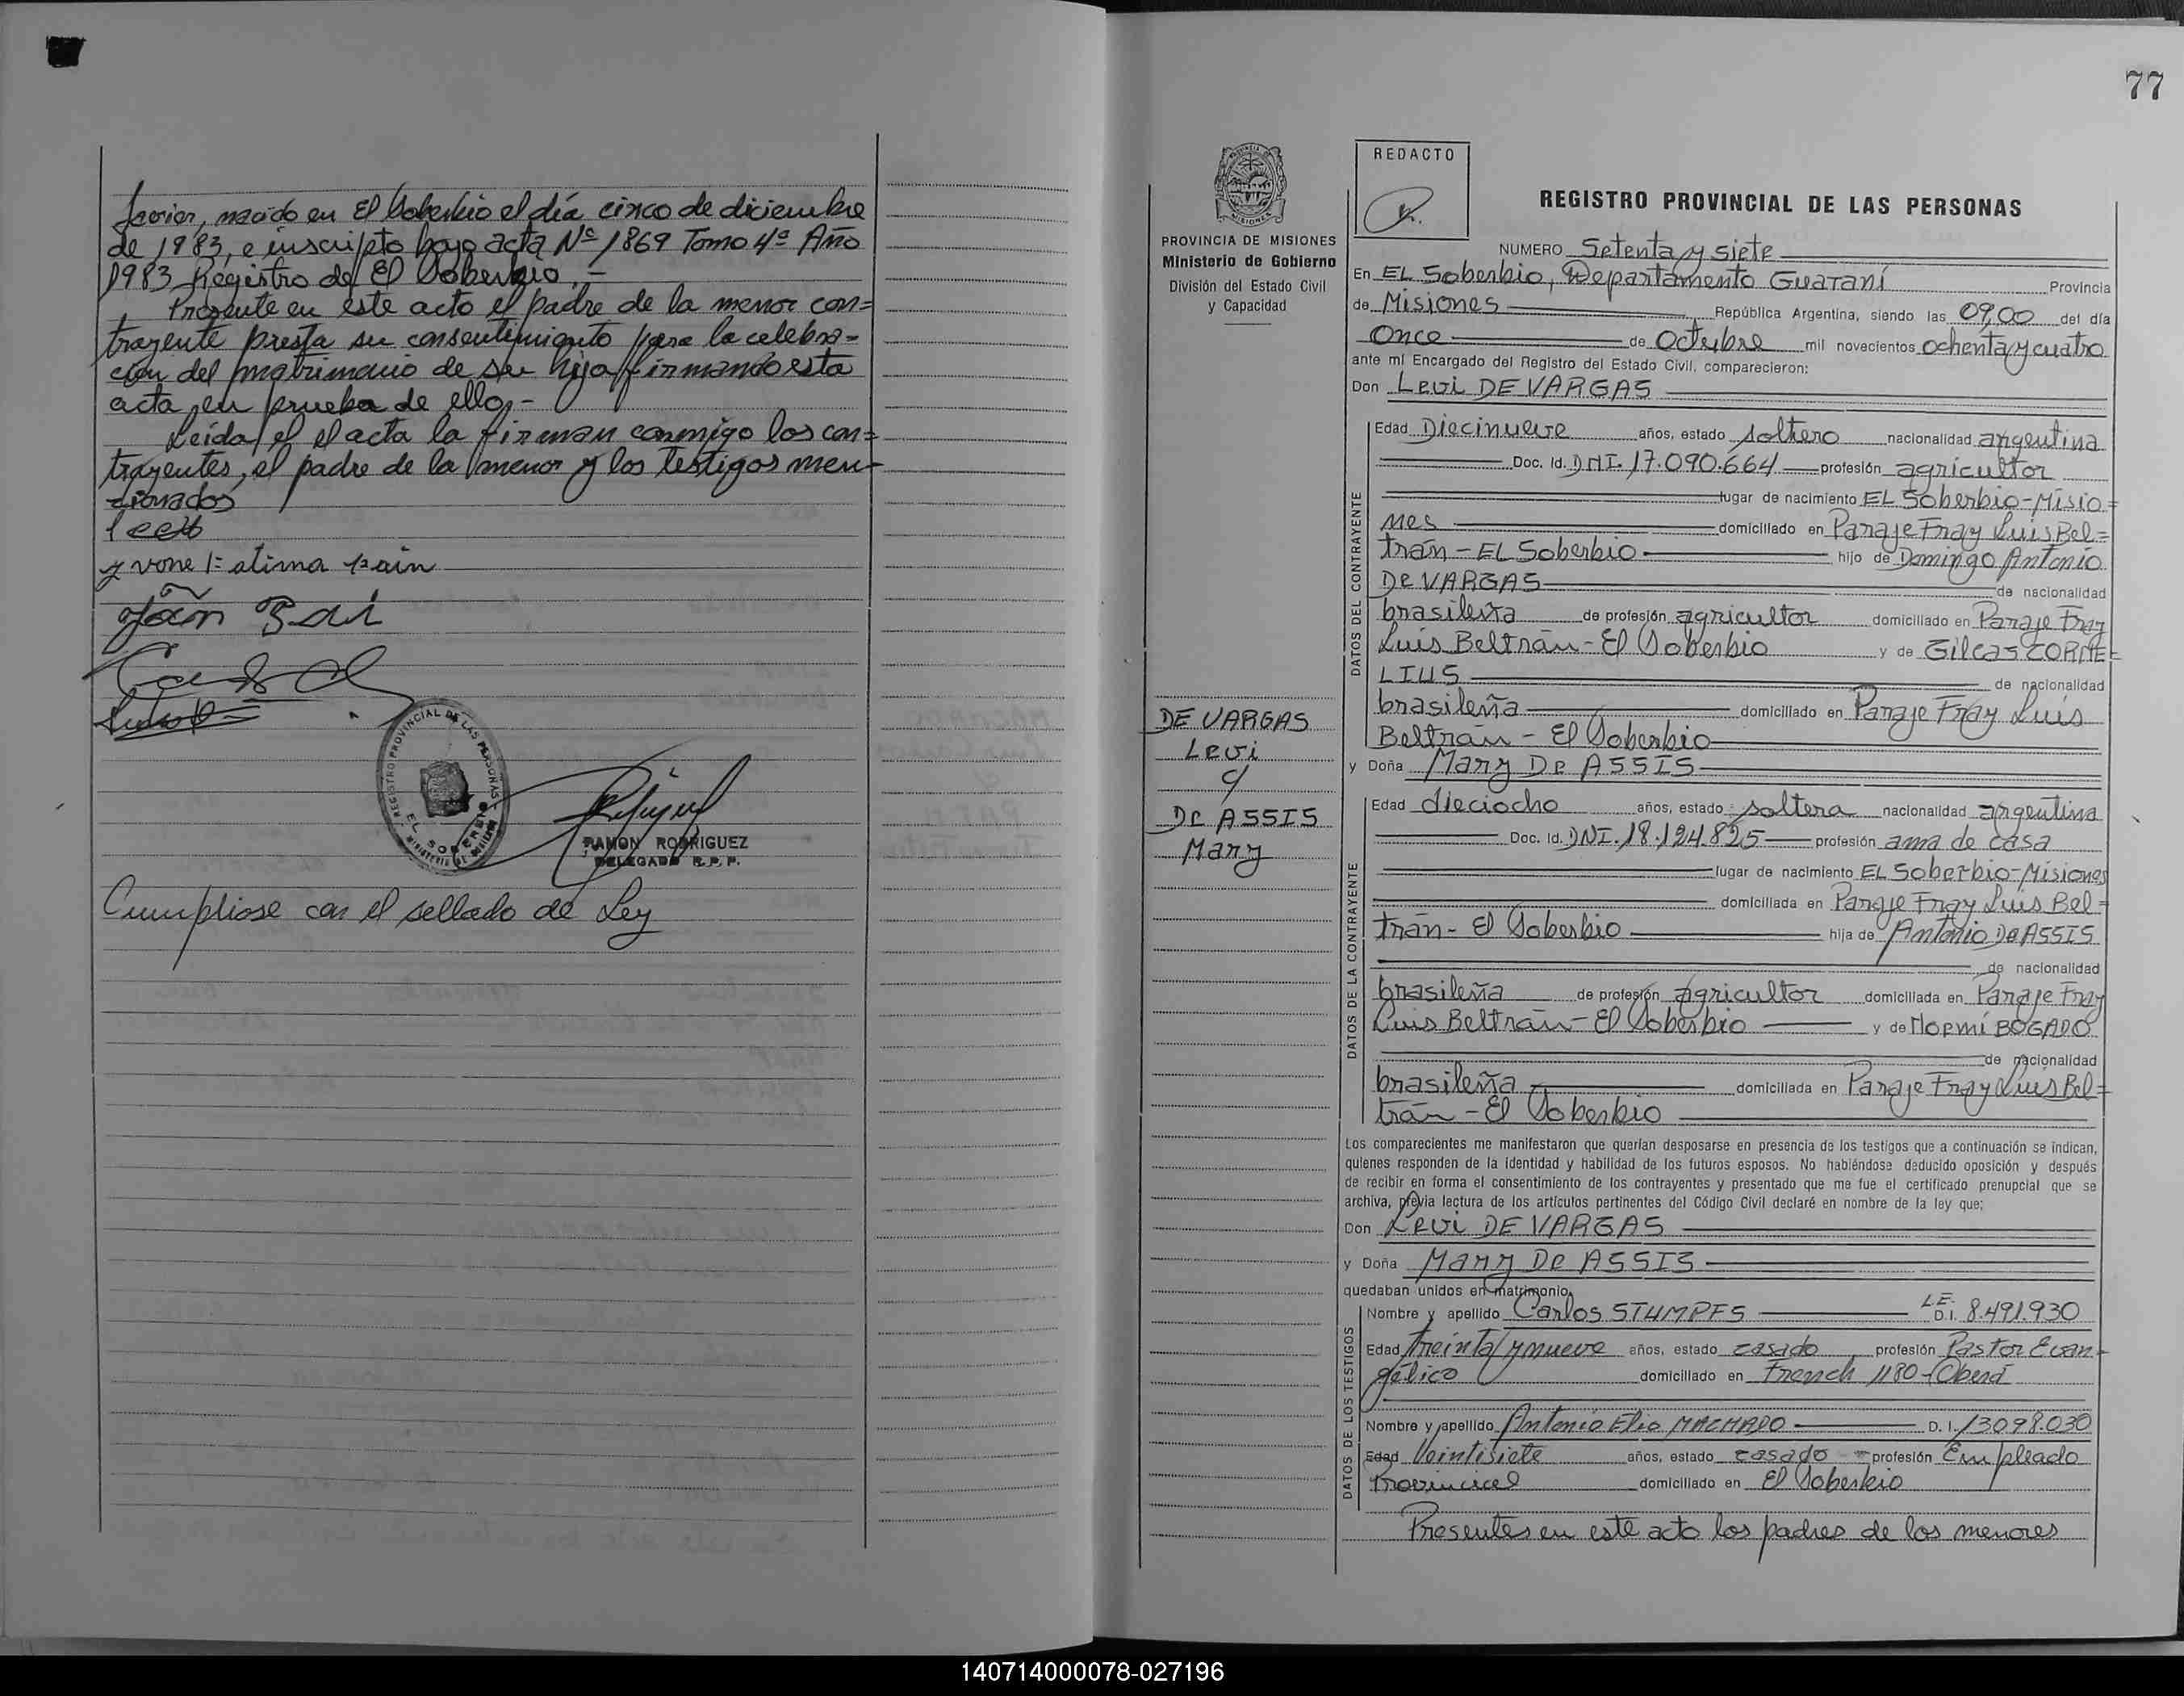 Javier, nacido en El Soberbio el día cinco de diciembre
de 1983, e inscripto bajo acta Nº 1869 Tomo 4º Año
1983 Registro de El Soberbio.-
Presente en este acto el padre de la menor con=
trayente presta su consentimiento para la celebra-
ción del matrimonio de su hija firmando esta
acta en prueba de ello,-
Leída el el acta la firman conmigo los con=
trayentes, el padre de la menor y los testigos men-
cionados
yvone Fatima
João
REGISTRO PROVINCIAL DE LAS PERSONAS
EL SOBERBIO
RAMON RODRIGUEZ
DELEGADO R.P.P.
Cumpliose con el sellado de Ley
77
PROVINCIA DE MISIONES
Ministerio de Gobierno
División del Estado Civil
y Capacidad
DE VARGAS
Levi
c/
De ASSIS
Mary
REDACTO
REGISTRO PROVINCIAL DE LAS PERSONAS
NUMERO Setenta y siete
En EL Soberbio, Departamento Guaraní Provincia
de Misiones República Argentina, siendo las 09,00 del día
Once de Octubre mil novecientos ochenta y cuatro
ante mí Encargado del Registro del Estado Civil, comparecieron:
Don Levi DE VARGAS
DATOS DEL CONTRAYENTE
Edad Diecinueve años, estado soltero nacionalidad argentina
Doc. Id. DNI. 17.090.664 profesión agricultor
lugar de nacimiento EL Soberbio-Misio=
nes domiciliado en Paraje Fray Luis Bel=
trán - EL Soberbio hijo de Domingo Antonio
DE VARGAS de nacionalidad
brasileña de profesión agricultor domiciliado en Paraje Fray
Luis Beltrán - El Soberbio y de Gilcas CORNE=
LIUS de nacionalidad
brasileña domiciliado en Paraje Fray Luis
Beltrán - El Soberbio
y Doña Mary De ASSIS
DATOS DE LA CONTRAYENTE
Edad dieciocho años, estado soltera nacionalidad argentina
Doc. Id. DNI. 18.124.825 profesión ama de casa
lugar de nacimiento EL Soberbio-Misiones
domiciliada en Paraje Fray Luis Bel=
trán - El Soberbio hija de Antonio De ASSIS
de nacionalidad
brasileña de profesión agricultor domiciliada en Paraje Fray
Luis Beltrán - El Soberbio y de Noemí BOGADO
de nacionalidad
brasileña domiciliada en Paraje Fray Luis Bel=
trán - El Soberbio
Los comparecientes me manifestaron que querían desposarse en presencia de los testigos que a continuación se indican,
quienes responden de la identidad y habilidad de los futuros esposos. No habiéndose deducido oposición y después
de recibir en forma el consentimiento de los contrayentes y presentado que me fue el certificado prenupcial que se
archiva, previa lectura de los artículos pertinentes del Código Civil declaré en nombre de la ley que:
Don Levi DE VARGAS
y Doña Mary De ASSIS
quedaban unidos en matrimonio.
DATOS DE LOS TESTIGOS
Nombre y apellido Carlos STUMPFS L.E. D.I. 8.491.930
Edad treinta y nueve años, estado casado profesión Pastor Evan-
gélico domiciliado en French 1180 - Oberá
Nombre y apellido Antonio Elio MACHADO D.I. 13.098.030
Edad Veintisiete años, estado casado profesión Empleado
Provincial domiciliado en El Soberbio
Presentes en este acto los padres de los menores
140714000078-027196